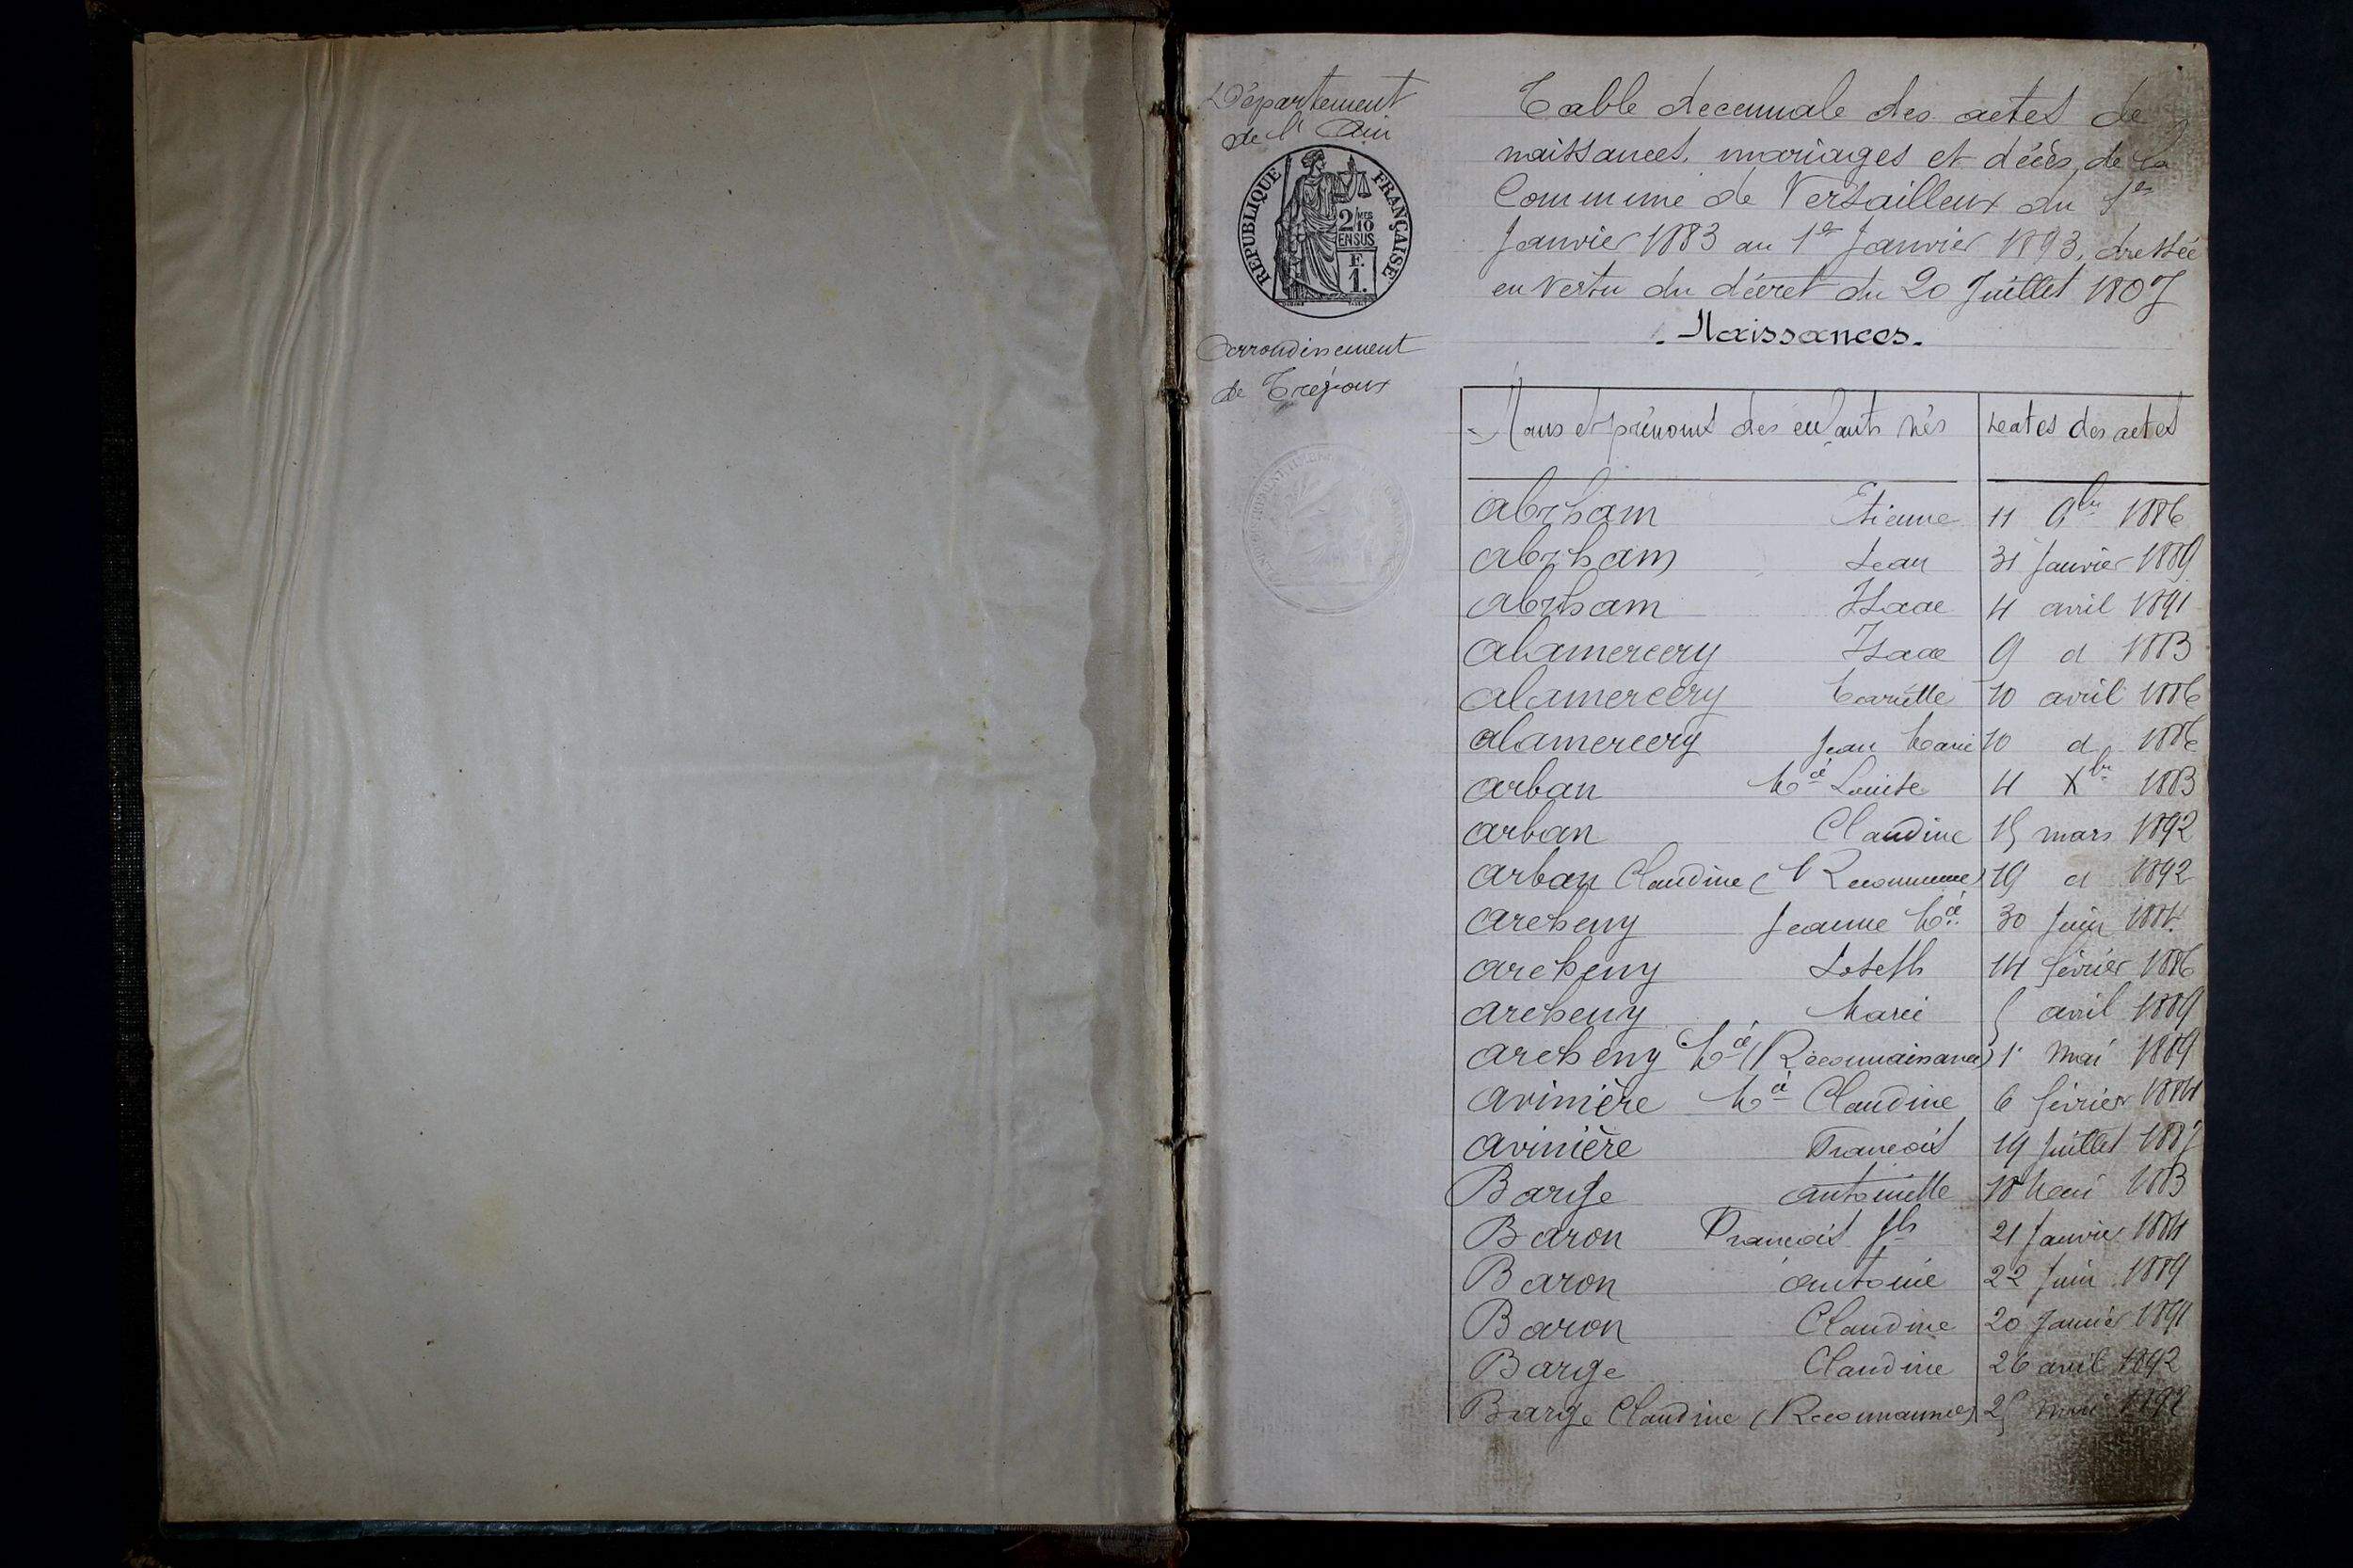 Département
de l'Ain
REPUBLIQUE FRANÇAISE
2/10 MES
EN SUS
F.
1.
Arrondissement
de Trévoux
Table decennale des actes de
naissances, mariages et décès, de la
Commune de Versailleux du 1er
Janvier 1883 au 1er Janvier 1893, dressée
en vertu du décret du 20 Juillet 1807
Naissances.
Noms et prénoms des enfants nés | Dates des actes
Abrham Etienne 11 9bre 1886
Abrham Jean 31 Janvier 1889
Abrham Isaac 4 avril 1891
Alamercery Isaac 9 d 1883
Alamercery Mariette 10 avril 1886
Alamercery Jean Marie 10 d 1886
Arban Mie Louise 4 Xbre 1883
Arban Claudine 15 mars 1892
Arban Claudine ( 19 d 1892
Archeny Jeanne Mie 30 Juin 1884
Archeny Joseph 14 février 1886
Archeny Marie 5 avril 1889
Archeny Mie (Reconnaissance) 1er Mai 1889
Avinière Mie Claudine 6 février 1884
Avinière François 19 Juillet 1887
Barge Antoinette 18 Mai 1883
Baron François Jh 21 Janvier 1884
Baron Antoine 22 Juin 1889
Baron Claudine 20 Janvier 1891
Barge Claudine 26 avril 1892
Barge Claudine ( 25 mai 1892